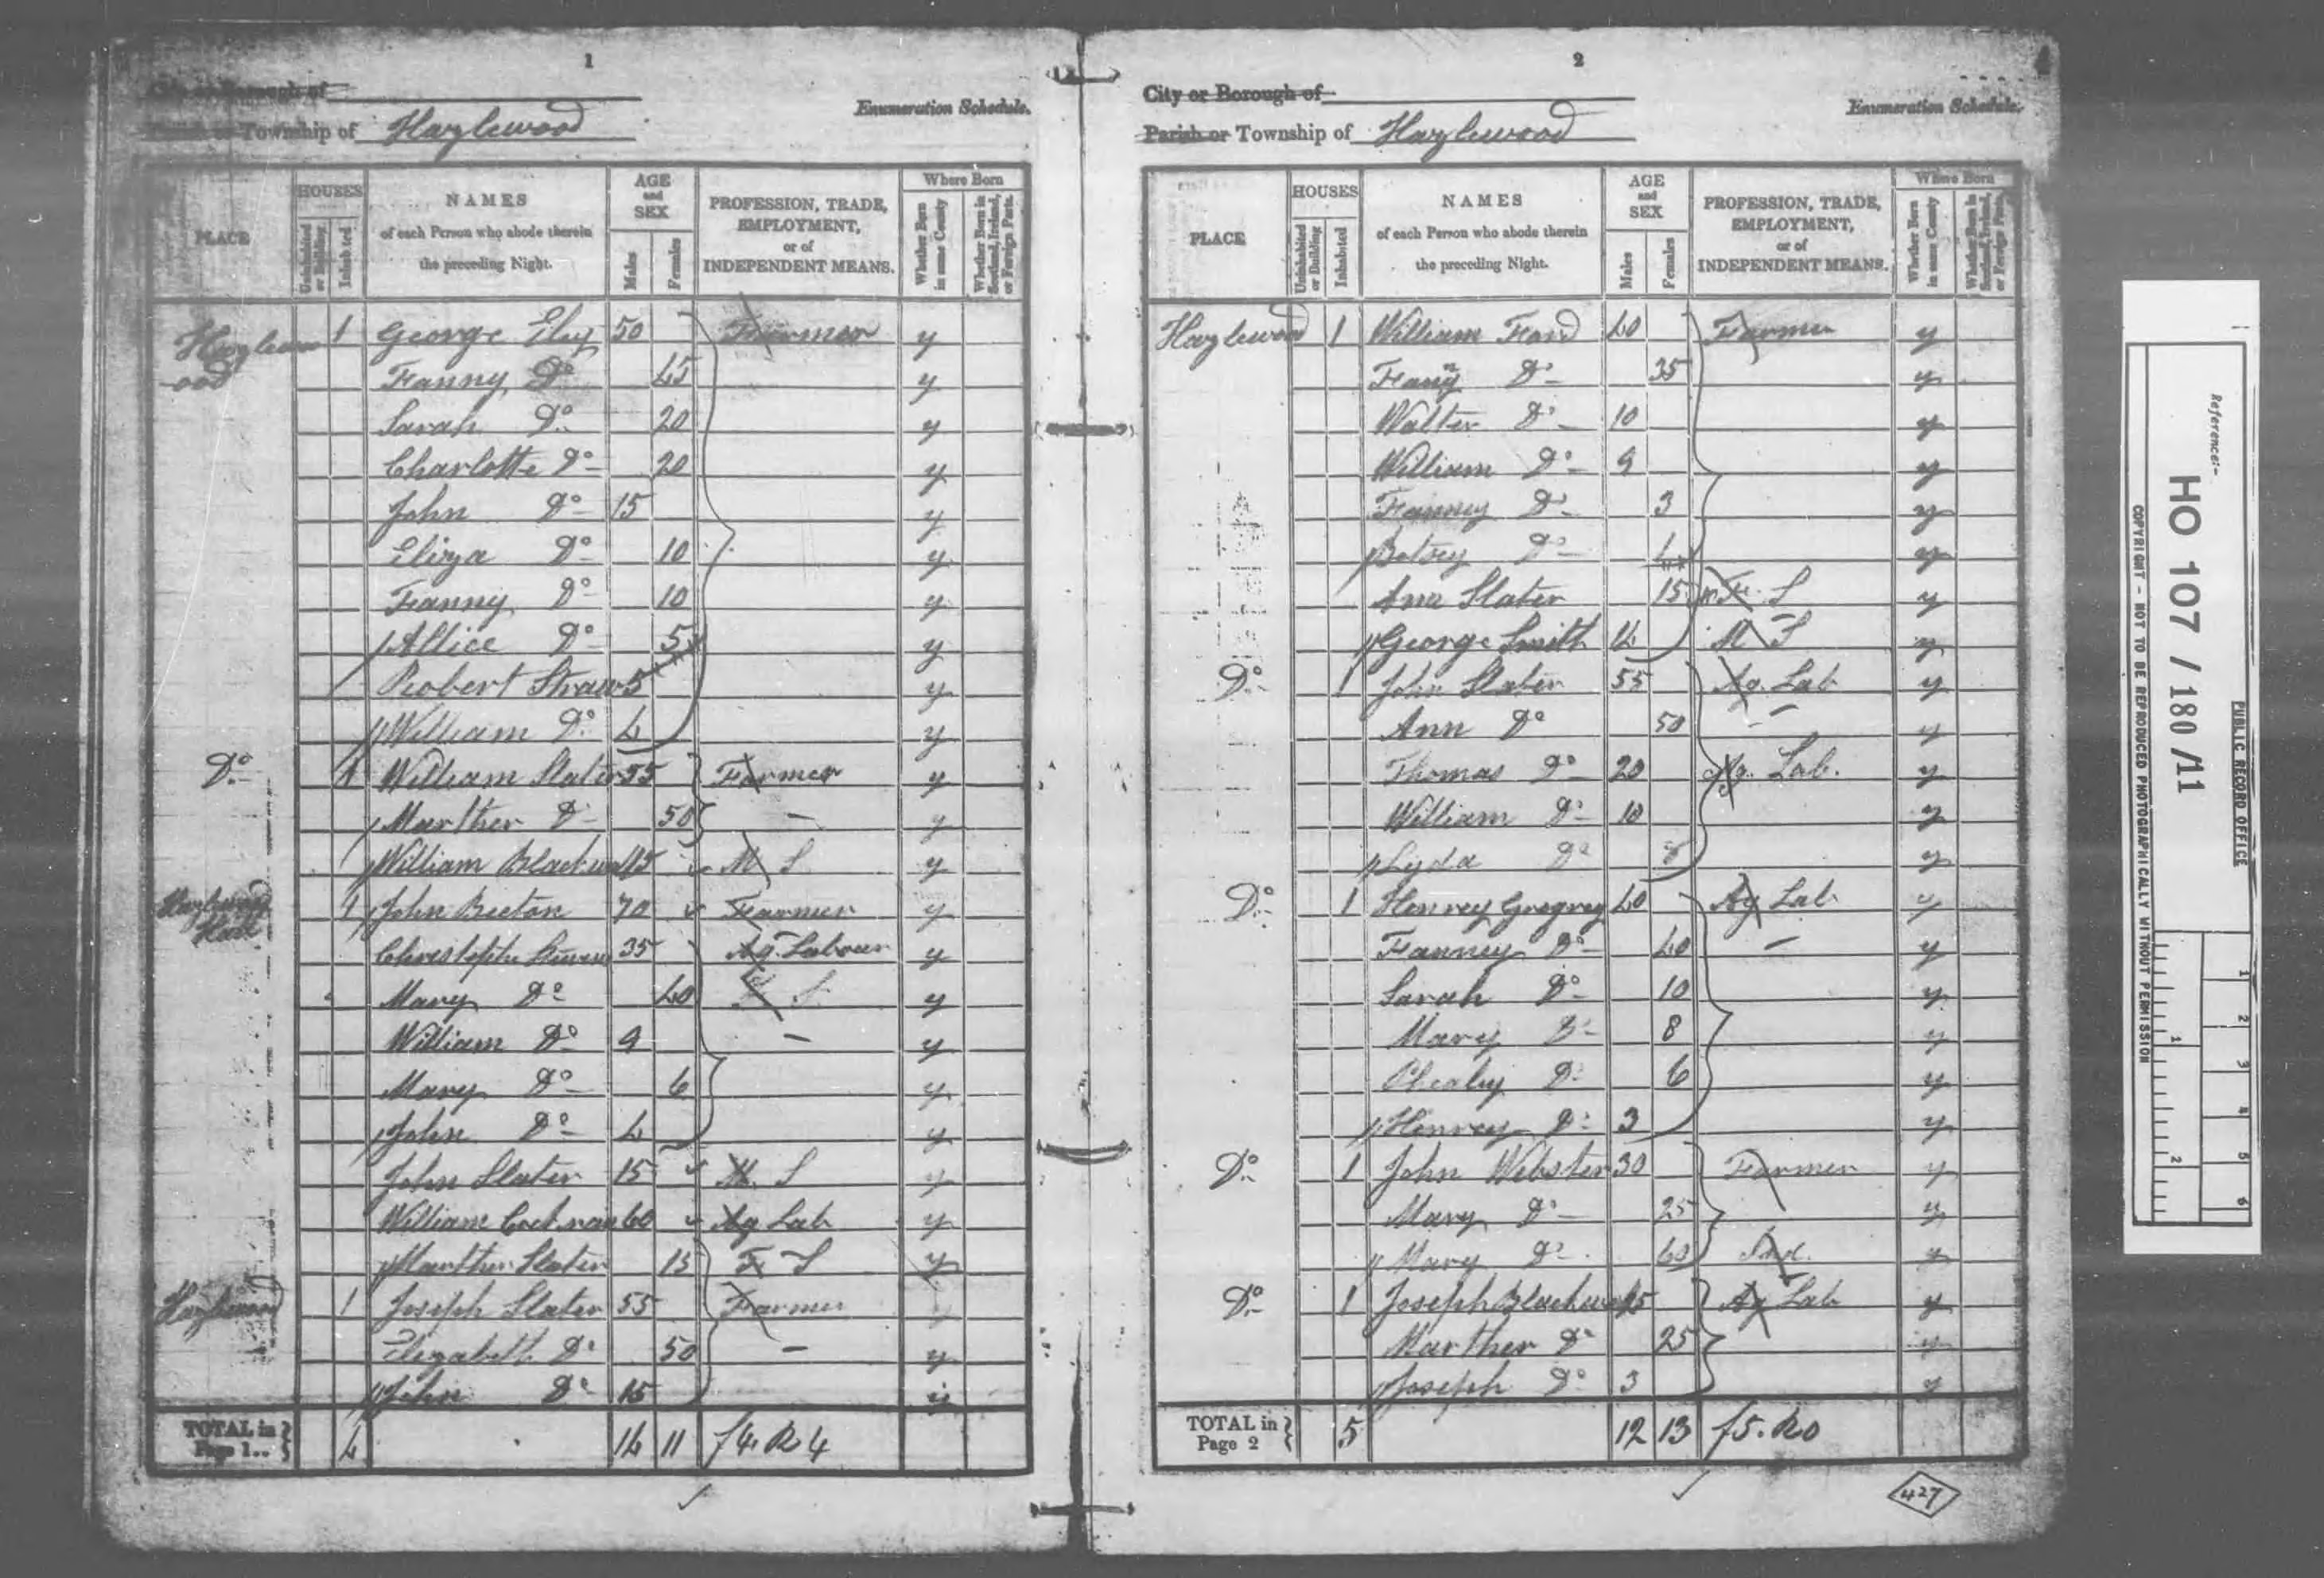 1
City or Borough of
Parish or Township of Hazlewood
Enumeration Schedule.
PLACE
HOUSES
Uninhabited or Building
Inhabited
NAMES
of each Person who abode therein
the preceding Night.
AGE
and
SEX
Males
Females
PROFESSION, TRADE,
EMPLOYMENT,
or of
INDEPENDENT MEANS.
Where Born
Whether Born in same County
Whether Born in Scotland, Ireland, or Foreign Parts.
Hazlewood 1 George Eley 50 Farmer y
Fanny Do 45 y
Sarah Do 20 y
Charlotte Do 20 y
John Do 15 y
Eliza Do 10 y
Fanny Do 10 y
Allice Do 5 y
Robert Straw 5 y
William Do 4 y
Do 1 William Slater 55 Farmer y
Marther Do 50 – y
William Blackwall 15 M S y
Hazlewood Hall 1 John Beeton 70 Farmer y
35 Ag. Labour y
Mary Do 40 F S y
William Do 9 – y
Mary Do 6 y
John Do 4 y
John Slater 15 M. S y
William 60 Ag Lab y
Marther Slater 15 F S y
Hazlewood 1 Joseph Slater 55 Farmer y
Elezabeth Do 50 – y
John Do 15
TOTAL in Page 1.. 4 14 11 f4. R 4
2
City or Borough of
Parish or Township of Hazlewood
Enumeration Schedule.
PLACE
HOUSES
Uninhabited or Building
Inhabited
NAMES
of each Person who abode therein
the preceding Night.
AGE
and
SEX
Males
Females
PROFESSION, TRADE,
EMPLOYMENT,
or of
INDEPENDENT MEANS.
Where Born
Whether Born in same County
Whether Born in Scotland, Ireland, or Foreign Parts.
Hazlewood 1 William Ford 40 Farmer y
Do 35 y
Walter Do 10 y
William Do 9 y
Fanney Do 3 y
Betsey Do y
Ann Slater 15 F. S y
George Smith M S y
Do 1 John Slater 55 Ag. Lab y
Ann Do 50 – y
Thomas Do 20 Ag. Lab. y
William Do 10 y
Lyda Do y
Do 1 Henrey Gregrey 40 Ag Lab y
Fanney Do 40 – y
Sarah Do 10 y
Mary Do 8 y
Do 6 y
Henrey Do 3 y
Do 1 John Webster 30 Farmer y
Mary Do 25 y
Mary Do 60 Ind. y
Do 1 Joseph Blackwall Ag Lab y
Marther Do 25 y
Joseph Do 3 y
TOTAL in Page 2 5 12 13 f5. R0
427
Reference:-
HO 107/180/11
PUBLIC RECORD OFFICE
COPYRIGHT - NOT TO BE REPRODUCED PHOTOGRAPHICALLY WITHOUT PERMISSION
1 2 3 4 5 6
1 2